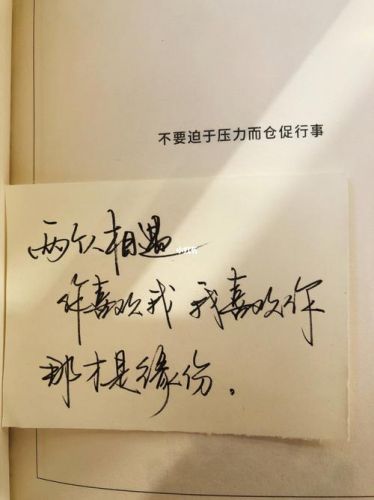 不要迫于压力而仓促行事
两个人相遇
你喜欢我 我喜欢你
那才是缘份。